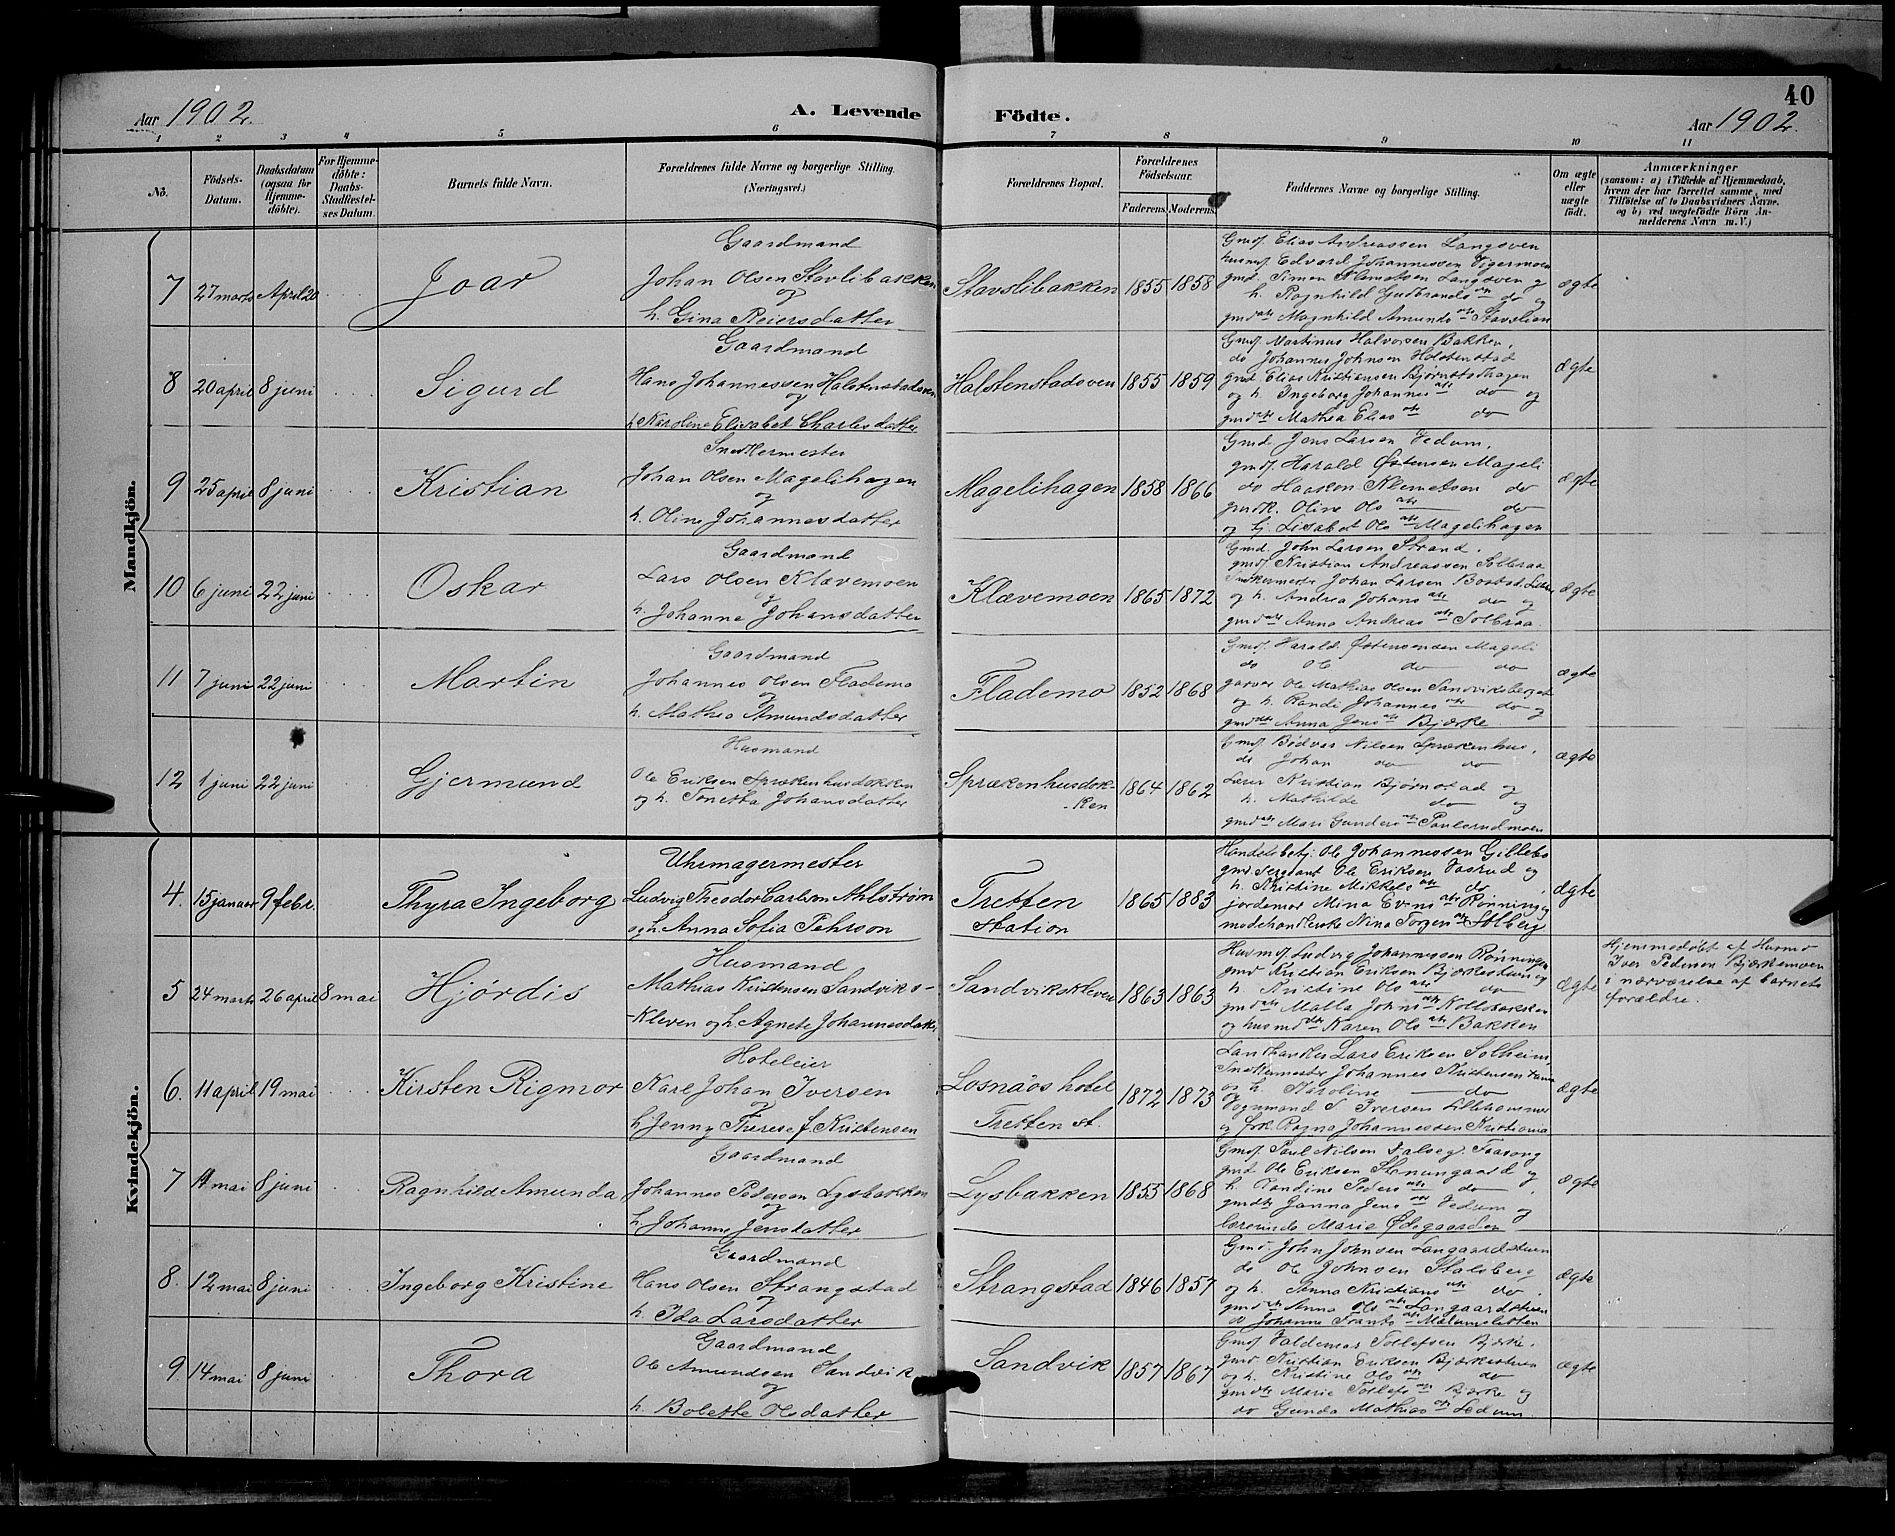 40
Aar 1902. A. Levende Födte. Aar 1902.
1 2 3 4 5 6 7 8 9 10 11
No.
Födsels-Datum.
Daabsdatum (ogsaa for Hjemme-döbte).
For Hjemme-döbte: Daabs-Stadfæstel-ses Datum.
Barnets fulde Navn.
Forældrenes fulde Navne og borgerlige Stilling. (Næringsvei.)
Forældrenes Bopæl.
Forældrenes Födselsaar.
Faderens Moderens
Faddernes Navne og borgerlige Stilling.
Om ægte eller uægte födt.
Anmærkninger
(saasom: a) i Tilfælde af Hjemmedaab,
hvem der har forrettet samme, med
Tilföielse af to Daabsvidners Navne.
og b) ved uægtefödte Börn An-
melderens Navn m. V.)
Mandkjön.
7 27 marts April 20 Joar
Gaardmand
Johan Olsen Stavlibakken
og
h. Gina Reiersdatter
Stavslibakken 1855 1858
Gmd. Elias Andreassen Langsven
husmd. Edvard Johannessen
gmd. Simen Klemetsen Langsven og
h. Ragnhild Gudbrands dtr do og
gmd dtr Magnhild Amunds dtr Stavslien
ægte
8 20 april 8 juni Sigurd
Gaardmand
Hans Johannessen Halstenstadsven
og
h. Karoline Elisabet Charlesdatter
Halstenstadsven 1855 1859
Gmd. Martinus Halvorsen Bakken,
do Johannes Johnsen Holstenstad
gmd. Elias Kristiansen Bjørnstadhagen
og h. Ingeborg Johannes dtr do og
gmd dtr Mathea Elias dtr do
ægte
9 25 april 8 juni Kristian
Snedkermester
Johan Olsen Magelihagen
og
h. Oline Johannesdatter
Magelihagen 1858 1866
Gmd. Jens Larsen Vedum,
gmd. Harald Østensen Mageli
do Haaken Klemetsen do
gmdk. Oline Ols dtr do
og Lisabet Ols dtr Magelihagen
ægte
10 6 juni 22 juni Oskar
Gaardmand
Lars Olsen Klævemoen
og
h. Johanne Johansdatter
Klævemoen 1865 1872
Gmd. John Larsen Strand,
gmd. Kristian Andreassen Solbraa
Snedkermester Johan Larsen
og h. Andrea Johans dtr do og
gmd dtr Anna Andreas dtr Solbraa
ægte
11 7 juni 22 juni Martin
Gaardmand
Johannes Olsen Flademo
og
h. Mathea Amundsdatter
Flademo 1852 1868
Gmd. Harald Østensen Mageli
do Ole do do
garver Ole Mathias Olsen Sandviksberget
og h. Randi Johannes dtr do og
gmd dtr Anna Jens dtr Bjærke
ægte
12 1 juni 22 juni Gjermund
Husmand
Ole Eriksen Sprækenhusdokken
og h. Tonetta Johansdatter
Sprækenhusdok-
-ken 1864 1862
Gmd. Bødvar Nilsen Sprækenhus,
do Johan do do
Lærer Kristian Bjørnstad og
h. Mathilde do og
gmd dtr Mari Gunders dtr Paulsrudmoen
ægte
Kvindekjön.
4. 15 januar 9 febr. Thyra Ingeborg
Uhrmagermester
Ludvig Theodor Carlson Ahlstrøm
og h. Anna Sofia Pehrson
Tretten
station 1865 1883
Handelsbetj. Ole Johannessen Gillebo
gmd. Sergeant Ole Eriksen og
h. Kristine Mikkels dtr do,
jordemor Mina Evens dtr Rønning og
modehandlerske Nina Torgers dtr Solberg
ægte
5 24 marts 26 april 8 mai Hjørdis
Husmand
Mathias Kristensen Sandviks-
-kleven og h. Agnete Johannesdatter
Sandvikskleven 1863 1863
Husmd. Ludvig Johannessen Rønningen
gmd. Kristian Eriksen Bjærkestuen og
h. Kristine Ols dtr do
gmd dtr Matla Johns dtr Kollebakken
og husmd dtr Karen Ols dtr Bakken
ægte
Hjemmedøbt af Husmd
Iver Pedersen Bjerkemoen
i nærværelse af barnets
forældre.
6. 11 april 19 mai Kirsten Rigmor
Hoteleier
Karl Johan Iversen
og
h. Jenny Therese f. Kristensen
Losnaos hotel
Tretten st. 1872 1873
Landhandler Lars Eriksen Solheim
Snedkermester Johannes Kristensen
og h. Karoline do
Sogumand S. Iversen Lillehammer
og frk. Ragna Johannessen Kristiania
ægte
7 11 mai 8 juni Ragnhild Amunda
Gaardmand
Johannes Pedersen Lysbakken
og
h. Johanne Jensdatter
Lysbakken 1855 1868
Gmd. Paul Nilsen
gmd Ole Eriksen Stenungaard og
h. Randine Peders dtr do,
gmdtr Janna Jens dtr Vedum og
lærerinde Marie Ødegaarden
ægte
8. 12 mai 8 juni Ingeborg Kristine
Gaardmand
Hans Olsen Strangstad
og
h. Ida Larsdatter
Strangstad 1846 1857
Gmd. John Johnsen Langaardstuen
do Ole Johnsen Stalsberg
og h. Anna Kristians dtr do,
gmd dtr Anna Ols dtr Langaardstuen
do Johanne Frants dtr Malumsletten
ægte
9 14 mai 8 juni Thora
Gaardmand
Ole Amundsen Sandvik
og
h. Bolette Olsdatter
Sandvik 1857 1867
Gmd. Valdemar Tollefsen Bjærke,
gmd. Kristian Eriksen Bjærkestuen
og h. Kristine Ols dtr do
gmdtr Marie Tollefs dtr Bjærke og
do Gunda Mathias dtr Vedum.
ægte